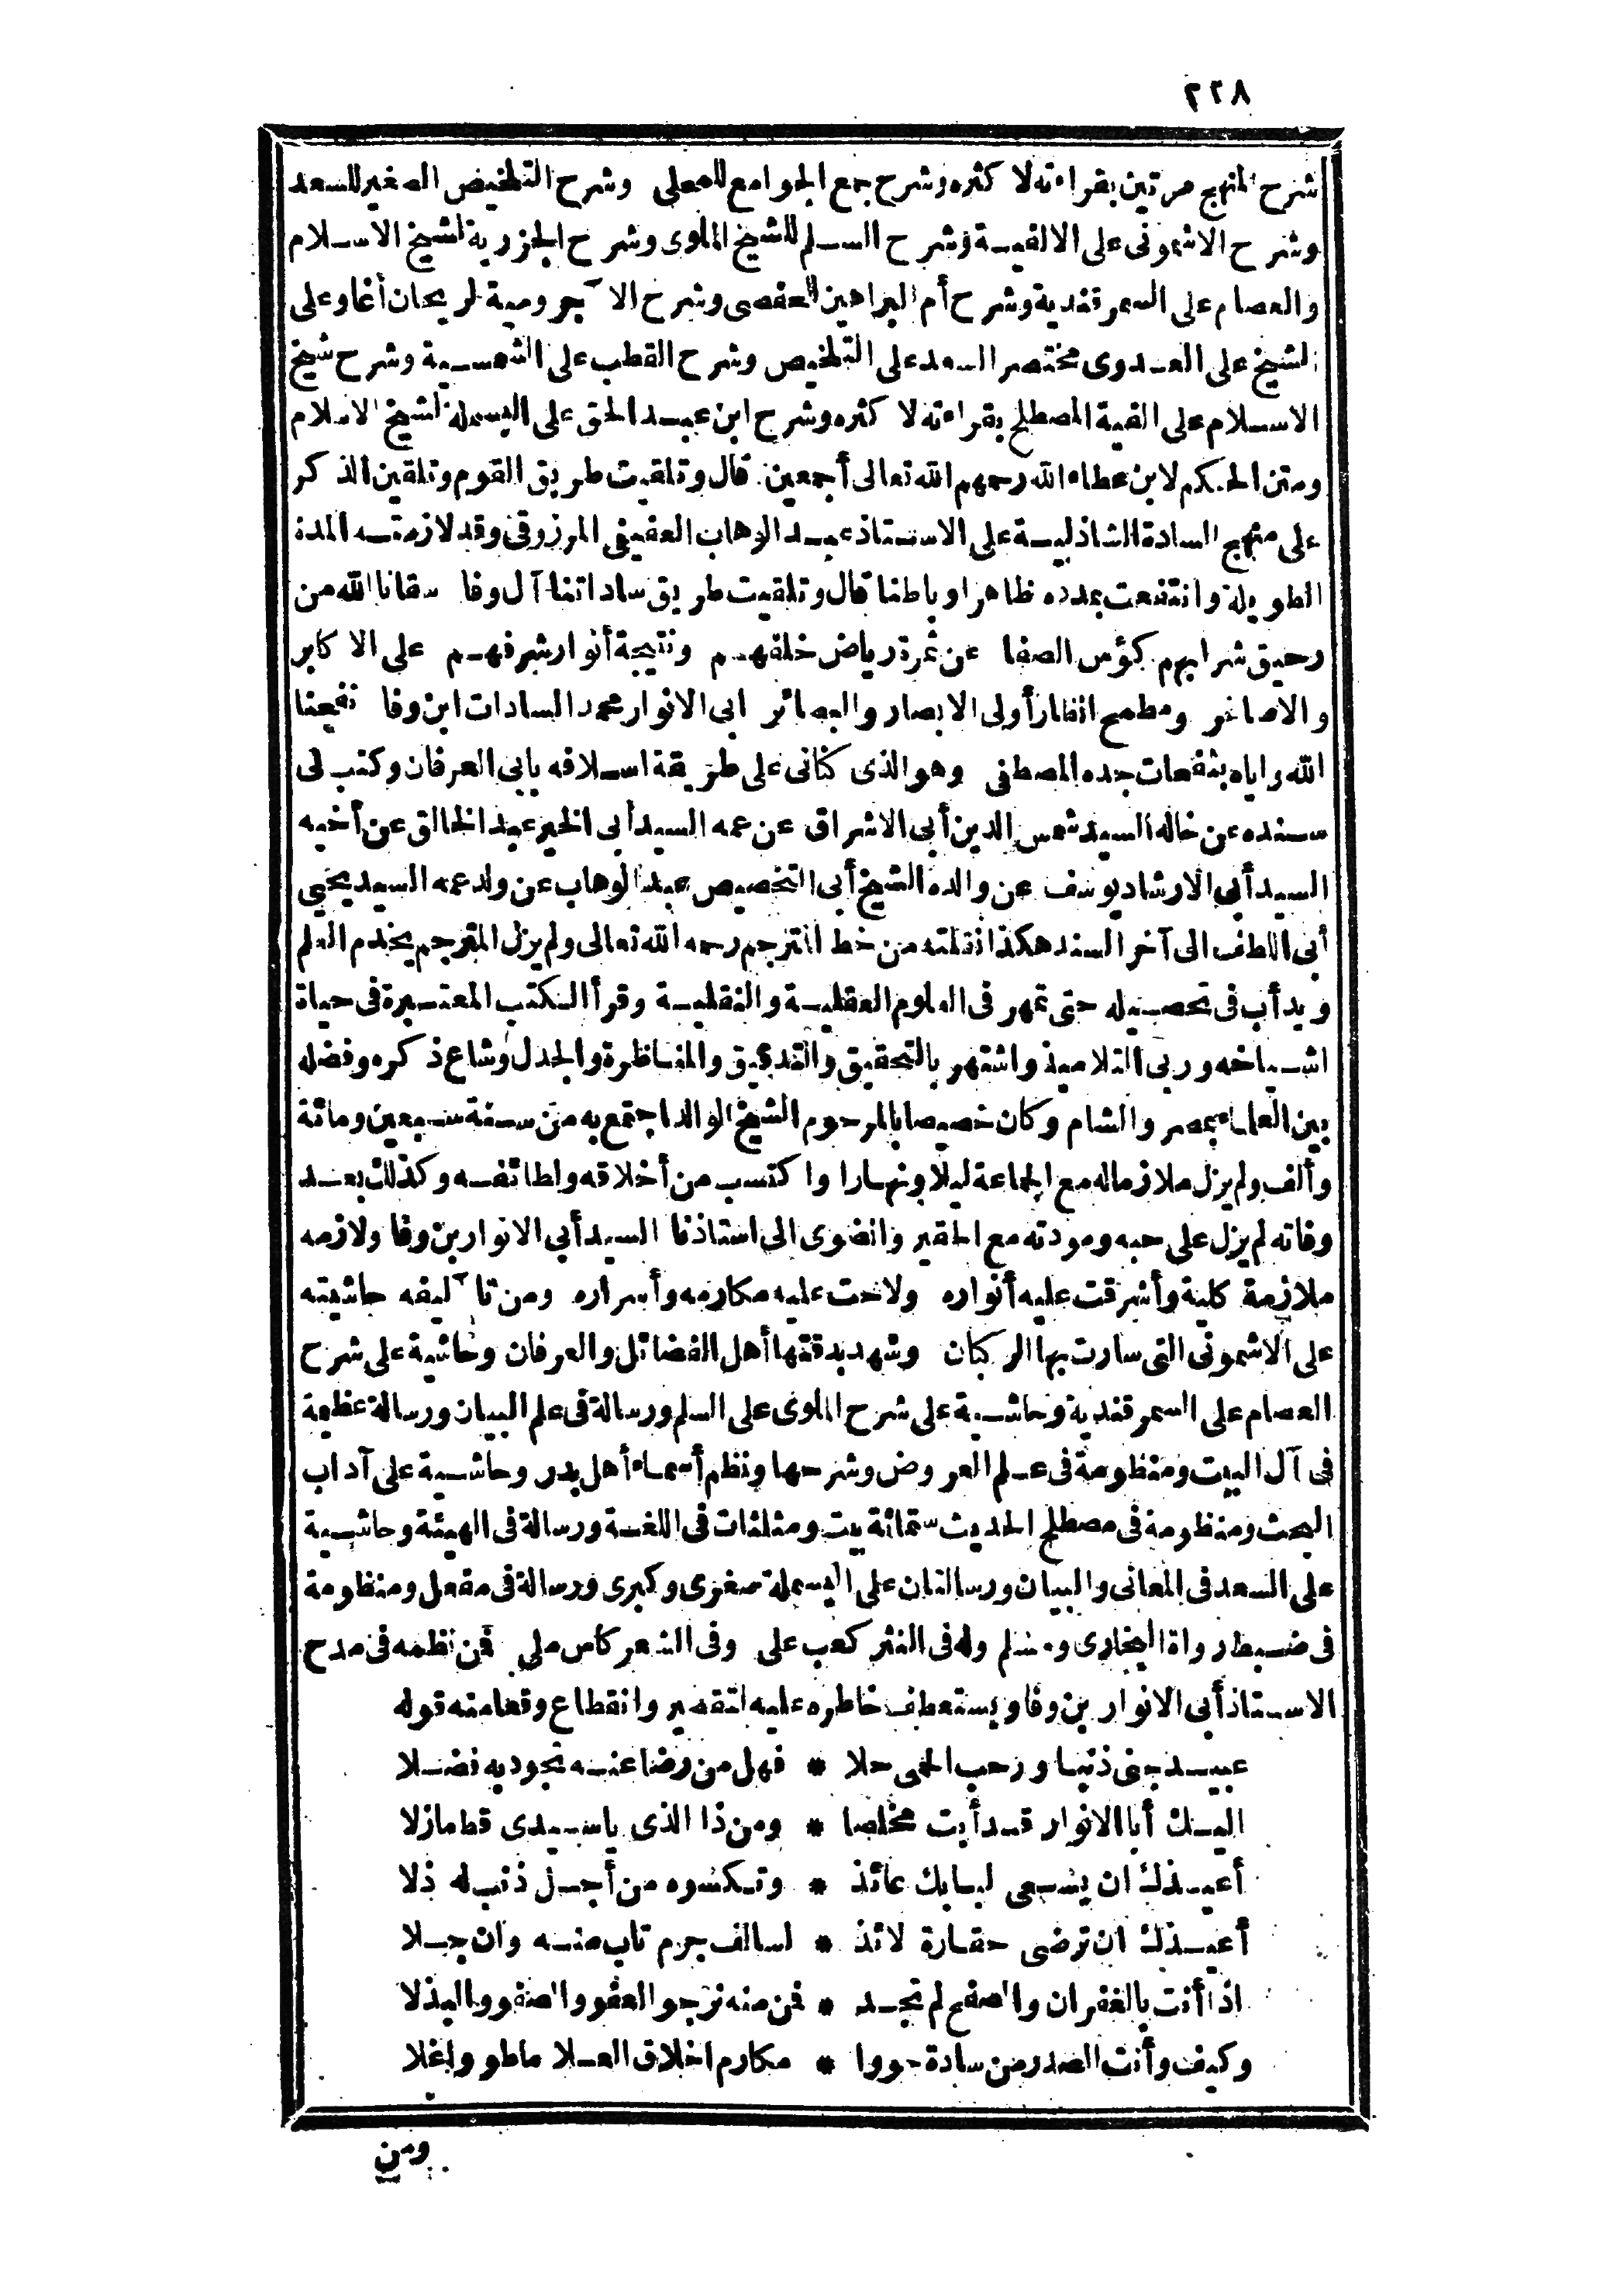 ٢٢٨
شرح المنهج مرتين بقراءته لاكثره وشرح جمع الجوامع للمحلى وشرح التلخيص الصغير للسعد
وشرح الاشمونى على الالفية وشرح السلم للشيخ الملوى وشرح الجزرية لشيخ الاسلام
والعصام على السمرقندية وشرح أم البراهين للحفصى وشرح الآجرومية لريحان أغا وعلى
الشيخ على العدوى مختصر السعد على التلخيص وشرح القطب على الشمسية وشرح شيخ
الاسلام على الفية المصطلح بقراءته لاكثره وشرح ابن عبد الحق على البسملة لشيخ الاسلام
ومتن الحكم لابن عطاء الله رحمهم الله تعالى أجمعين. قال وتلقيت طريق القوم وتلقين الذكر
على منهج السادة الشاذلية على الاستاذ عبد الوهاب العفيفى المرزوقى وقد لازمته المدة
الطويلة وانتفعت بمدده ظاهرا وباطنا قال وتلقيت طريق ساداتنا آل وفا سقانا الله من
رحيق شرابهم كؤس الصفا عن ثمرة رياض خلفهم ونتيجة أنوار شرفهم على الاكابر
والاصاغر ومطمح انظار أولى الابصار والبصائر ابى الانوار محمد السادات ابن وفا نفحنا
الله واياه بنفحات جده المصطفى وهو الذى كنانى على طريقة اسلافه بابى العرفان وكتب لى
سنده عن خاله السيد شمس الدين أبى الاشراق عن عمه السيد أبى الخير عبد الخالق عن أخيه
السيد أبى الارشاد يوسف عن والده الشيخ أبى التخصيص عبد الوهاب عن ولد عمه السيد يحيى
أبى اللطف الى آخر السند هكذا نقلته من خط المترجم رحمه الله تعالى ولم يزل المترجم يخدم العلم
ويدأب فى تحصيله حتى تمهر فى العلوم العقلية والنقلية وقرأ الكتب المعتبرة فى حياة
اشياخه وربى التلاميذ واشتهر بالتحقيق والتدقيق والمناظرة والجدل وشاع ذكره وفضله
بين العلماء بمصر والشام وكان خصيصا بالمرحوم الشيخ الوالد اجتمع به من سنة سبعين ومائة
وألف ولم يزل ملازما له مع الجماعة ليلا ونهارا واكتسب من أخلاقه ولطائفه وكذلك بعد
وفاته لم يزل على حبه ومودته مع الحقير وانضوى الى استاذنا السيد أبى الانوار بن وفا ولازمه
ملازمة كلية وأشرقت عليه أنواره ولاحت عليه مكارمه وأسراره ومن تآليفه حاشيته
على الاشمونى التى سارت بها الركبان وشهد بدقتها أهل الفضائل والعرفان وحاشية على شرح
العصام على السمرقندية وحاشية على شرح الملوى على السلم ورسالة فى علم البيان ورسالة عظيمة
فى آل البيت ومنظومة فى علم العروض وشرحها ونظم أسماء أهل بدر وحاشية على آداب
البحث ومنظومة فى مصطلح الحديث ستمائة بيت ومثلثات فى اللغة ورسالة فى الهيئة وحاشية
على السعد فى المعانى والبيان ورسالتان على البسملة صغرى وكبرى ورسالة فى مفعل ومنظومة
فى ضبط رواة البخارى ومسلم وله فى النثر كعب على وفى الشعر كاس ملى فمن نظمه فى مدح
الاستاذ أبى الانوار بن وفا ويستعطف خاطره عليه لتقصير وانقطاع وقعا منه قوله
عبيد جنى ذنبا ورحب الحمى حلا * فهل من رضا عنه تجود به فضلا
اليك أبا الانوار قد أبت مخلصا * ومن ذا الذى ياسيدى قط مازلا
أعيذك ان يسعى لبابك عائذ * وتكسوه من أجل ذنب له ذلا
أعيذك ان ترضى حقارة لائذ * لسالف جرم تاب منه وان جلا
اذا أنت بالغفران والصفح لم تجد * فمن منه نرجو العفو والصفو والبذلا
وكيف وأنت الصدر من سادة حووا * مكارم اخلاق العلا ماطووا غلا
ومن